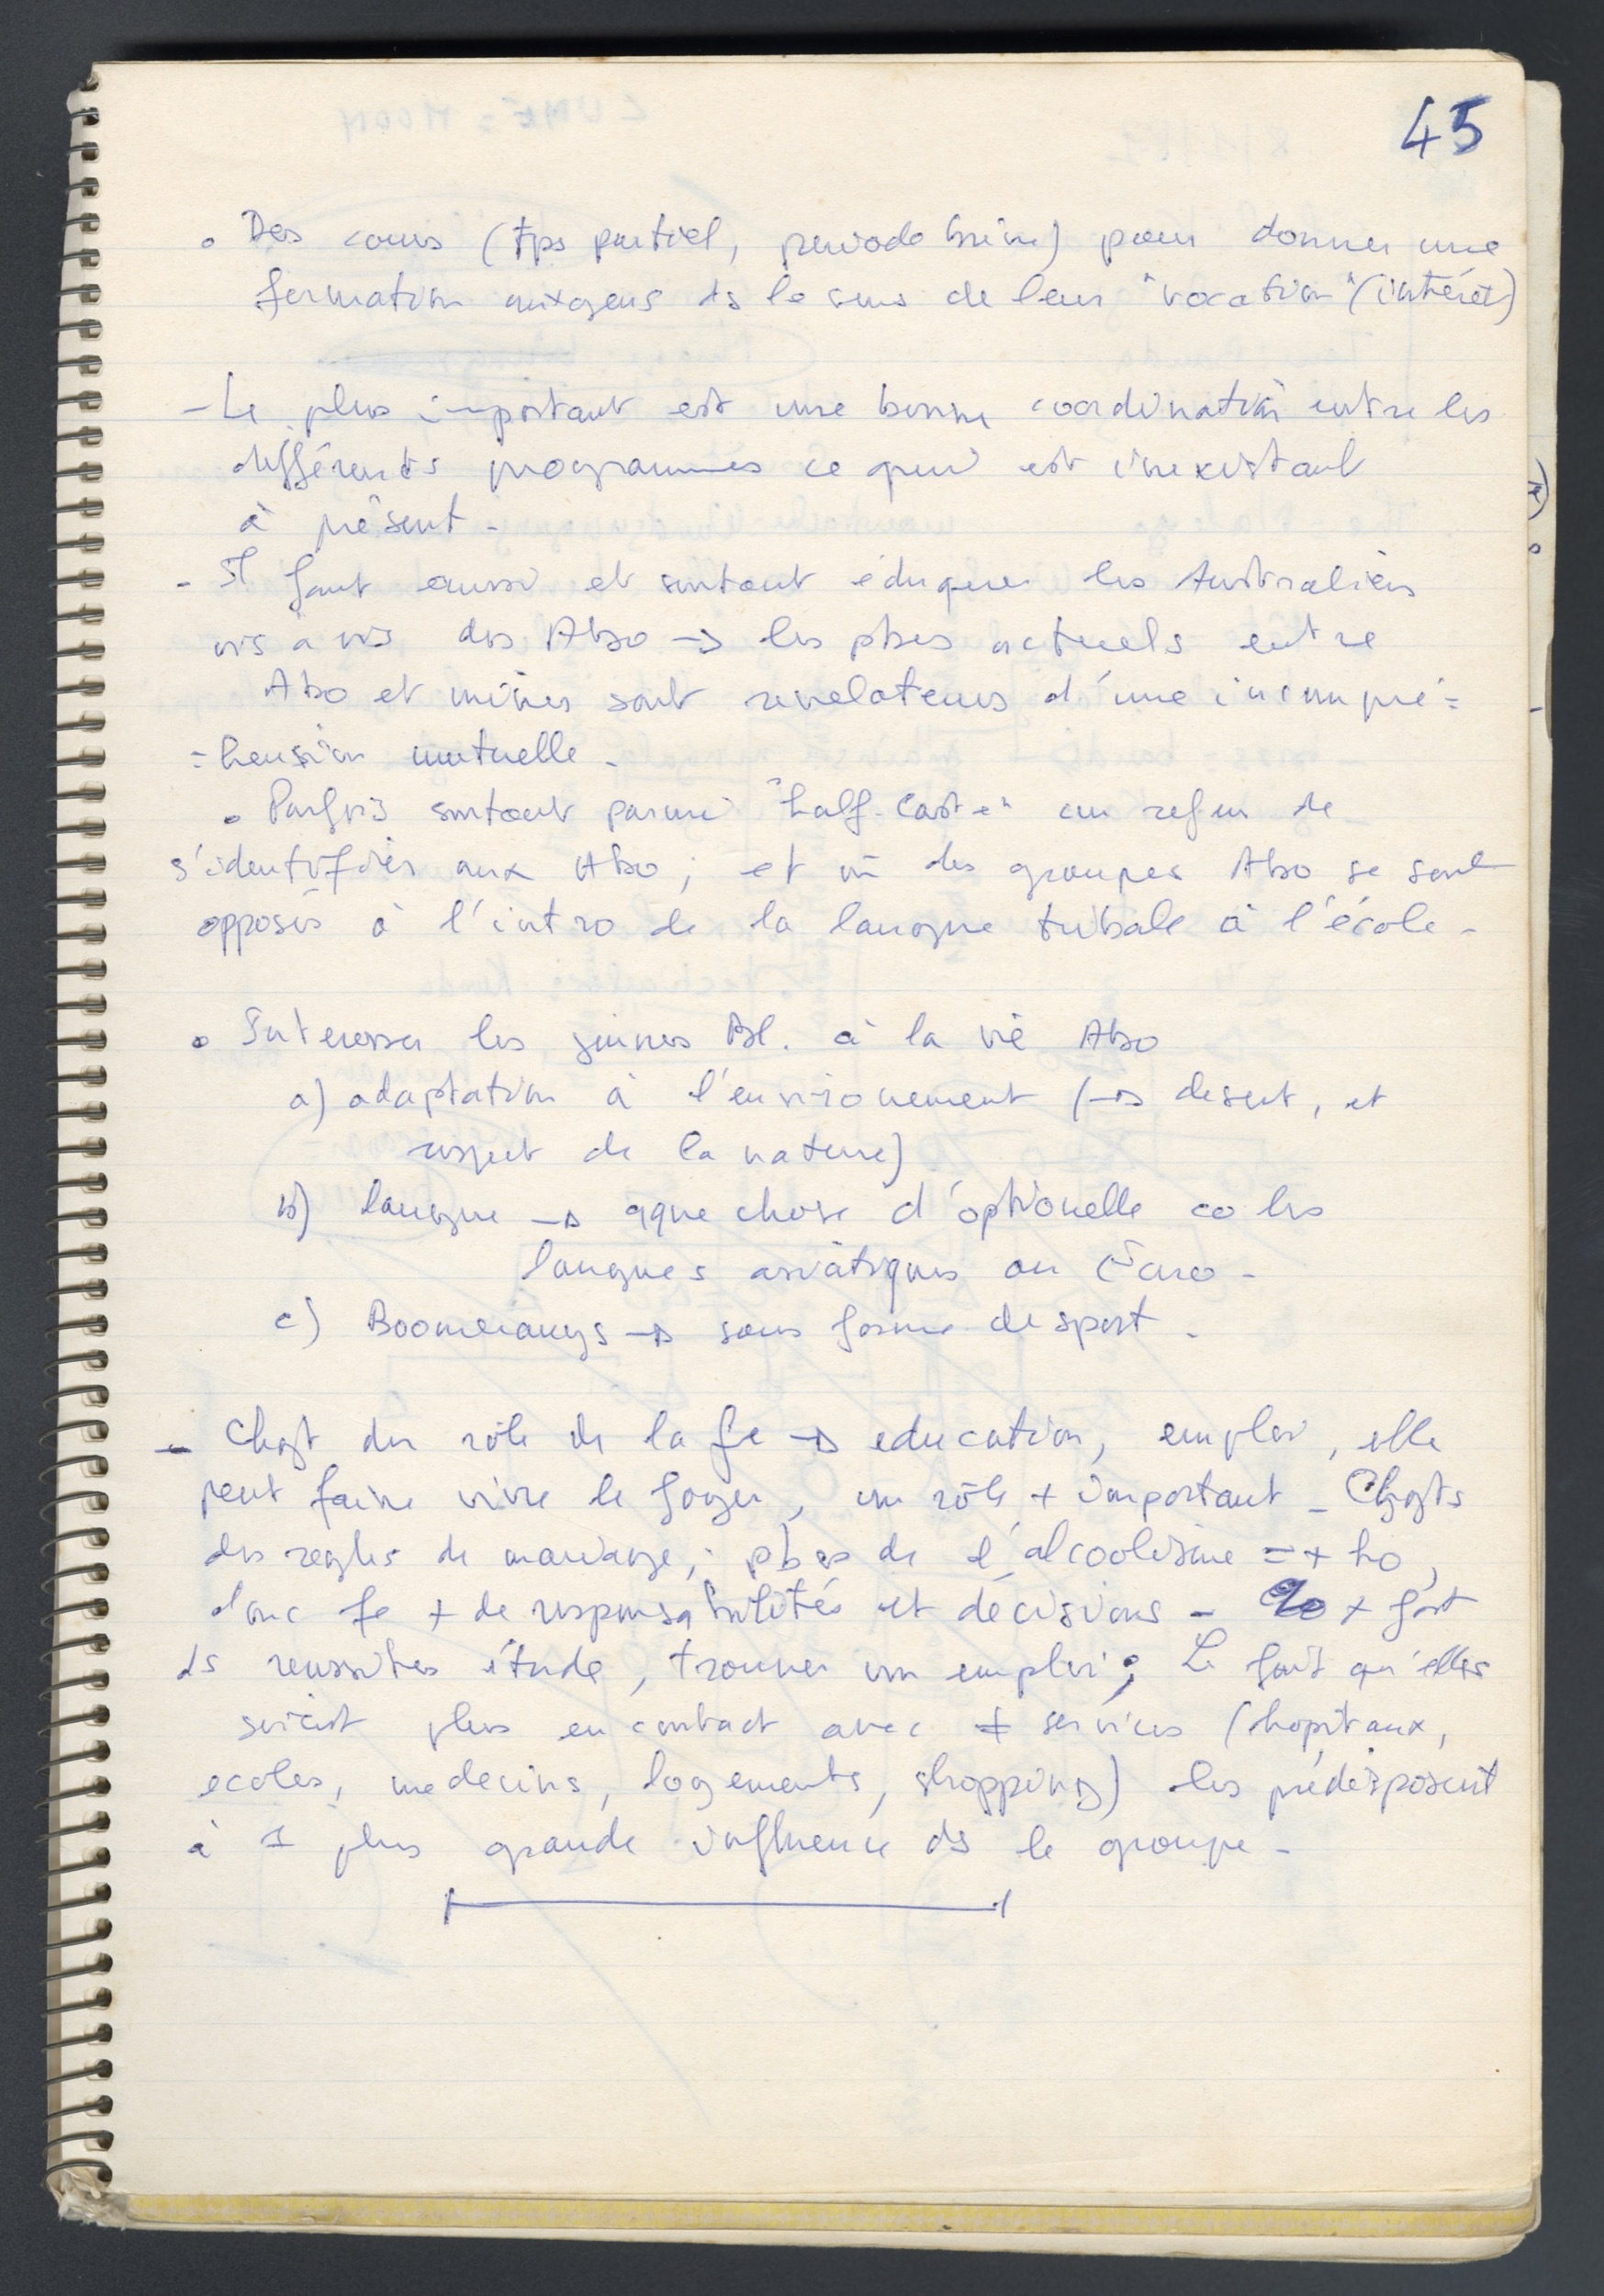 45
• Des cours (tps partiel, periode brève) pour donner une
formation aux gens ds le sens de leur "vocation" (intérêt)
- Le plus important est une bonne coordination entre les
différents programmes ce qui est inexistant
à présent -
- Il faut aussi et surtout éduquer les Australiens
vis a vis des Abo → les pbes actuels entre
Abo et mines sont revelateurs d'une incompré=
=hension mutuelle -
• Parfois surtout parmi "half-caste" un refus de
s'identifier aux Abo ; et des groupes Abo se sont
opposés à l'intro de la langue tribale à l'école -
• Interesser les jeunes Bl. à la vie Abo
a) adaptation à l'environement (→ desert, et
respect de la nature)
b) langue → qque chose d'optionelle co les
langues asiatiques ou Euro -
c) Boomerangs → sous forme de sport -
- Chgt du rôle de la fe → education, emploi, elle
peut faire vivre le foyer, un rôle + important - Chgts
des regles de mariage ; pbes de l'alcoolisme = + ho,
donc fe + de responsabilités et décisions - + fort
ds reussites étude, trouver un emploi ; Le fait qu'elles
soient plus en contact avec ≠ services (hopitaux,
ecoles, medecins, logements, shopping) les prédisposent
à 1 plus grande influence ds le groupe -